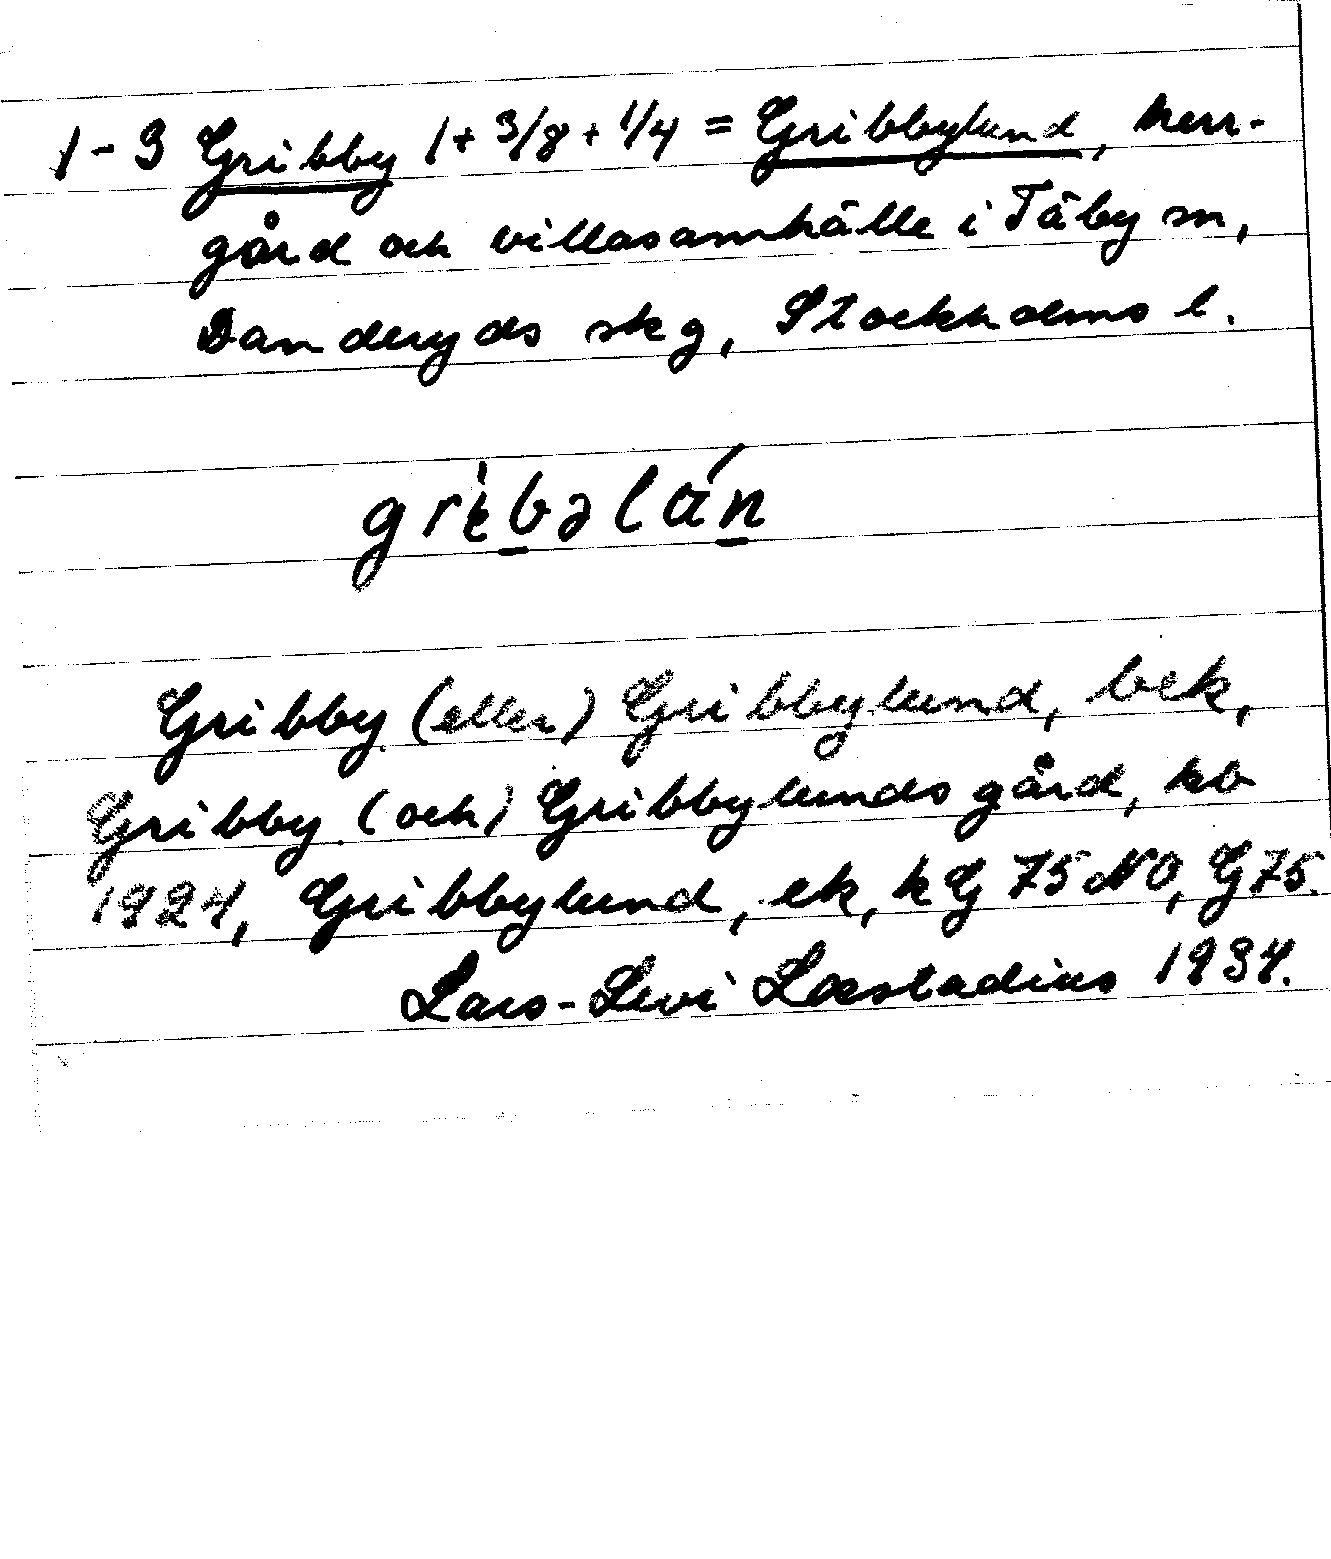 1-3 Gribby 1 + 3/8 + 1/4 = Gribbylund, herr-
gård och villasamhälle i Täby sn,
Danderyds skg, Stockholms l.
Gribby (eller) Gribbylund, bek,
Gribby (och) Gribbylunds gård, kb
1924, Gribbylund, ek, hG 75 NO, G 75.
Lars-Levi Læstadius 1934.